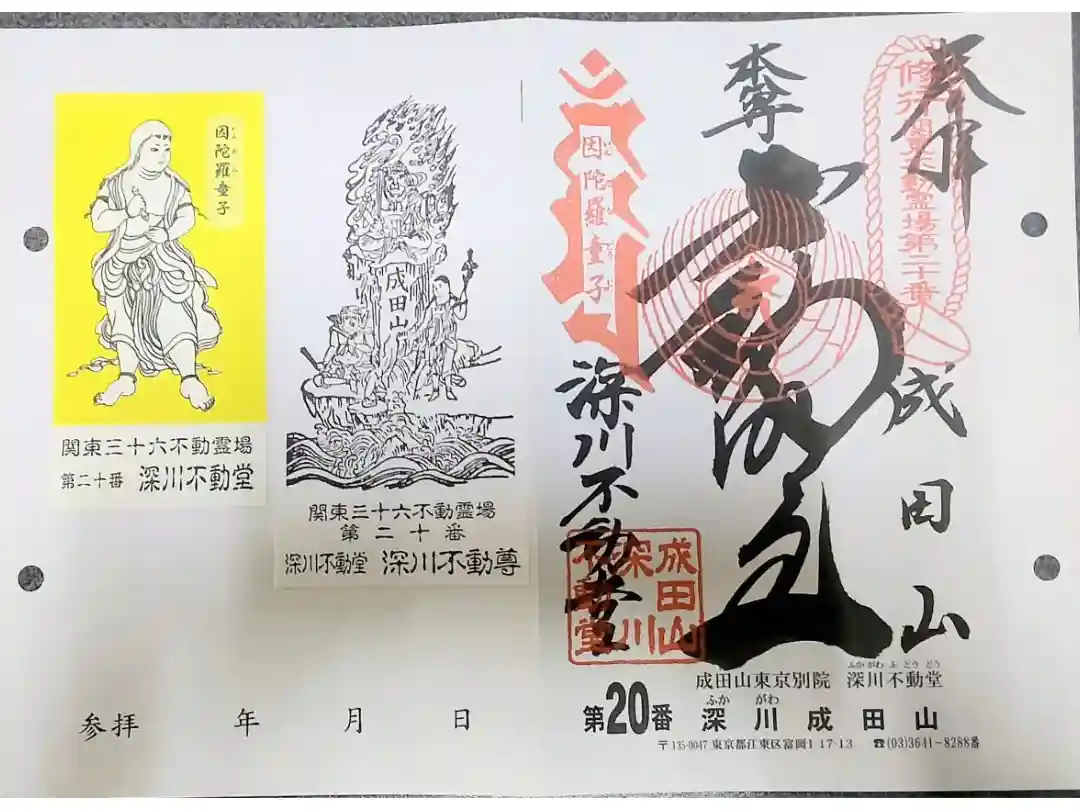 奉拝
修行関東不動霊場第二十番
成田山
奉
因陀羅童子
深川不動堂
成田山
深川
不動堂
成田山東京別院 深川不動堂
ふかがわ ふ どう どう
第20番 深川成田山
ふか がわ
〒135-0047 東京都江東区富岡1-17-13 ☎(03)3641-8288番
成田山
関東三十六不動霊場
第二十番
深川不動堂 深川不動尊
因陀羅童子
関東三十六不動霊場
第二十番 深川不動堂
参拝 年 月 日